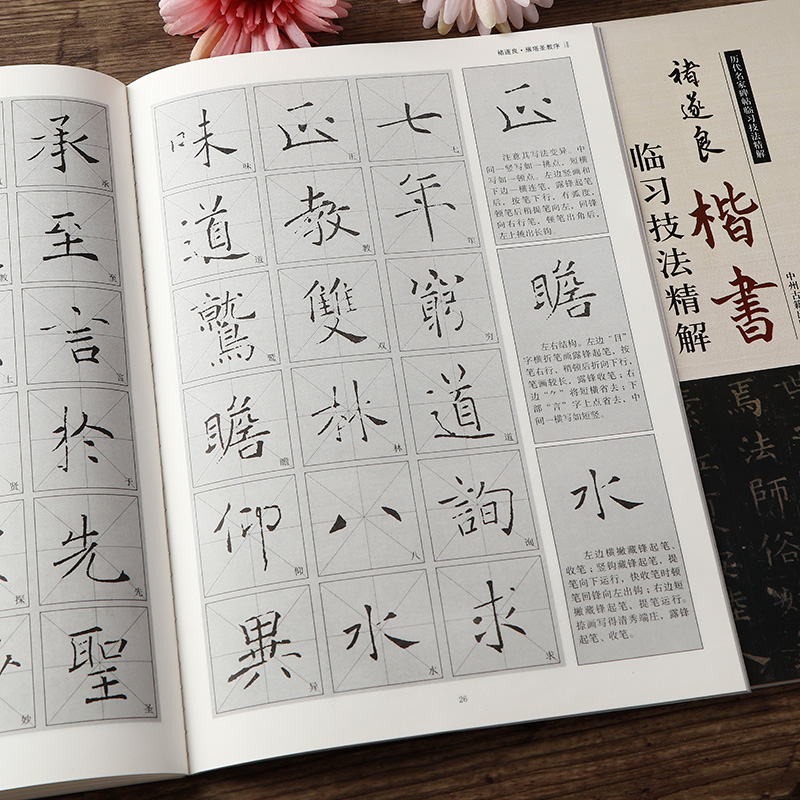 承
承
教
至
至
言
言
上
於
于
贤
先
先
探
聖
圣
妙
褚遂良·雁塔圣教序
味 正 七
味 正 七
道 教 年
道 教 年
鷲 雙 窮
鹫 双 穷
瞻 林 道
瞻 林 道
仰 八 詢
仰 八 询
異 水 求
异 水 求
正
注意其写法变异。中
间一竖写如一挑点,短横
写如一顿点。左边竖画和
下边一横连笔,露锋起笔
后,按笔下行,有弧度,
顿笔后稍提笔向左,回锋
向右行笔,顿笔出角后,
左上掀出长钩。
瞻
左右结构。左边“目”
字横折笔画露锋起笔,按
笔右行,稍顿后折向下行,
笔画较长,露锋收笔;右
边“⺈”将短横省去;下
部“言”字上点省去,中
间一横写如短竖。
水
左边横撇藏锋起笔、
收笔;竖钩藏锋起笔,提
笔向下运行,快收笔时顿
笔回锋向左出钩;右边短
撇藏锋起笔、提笔运行。
捺画写得清秀端庄,露锋
起笔、收笔。
26
历代名家碑帖临习技法精解
褚遂良
楷書
临习技法精解
中州古籍
焉法師俗